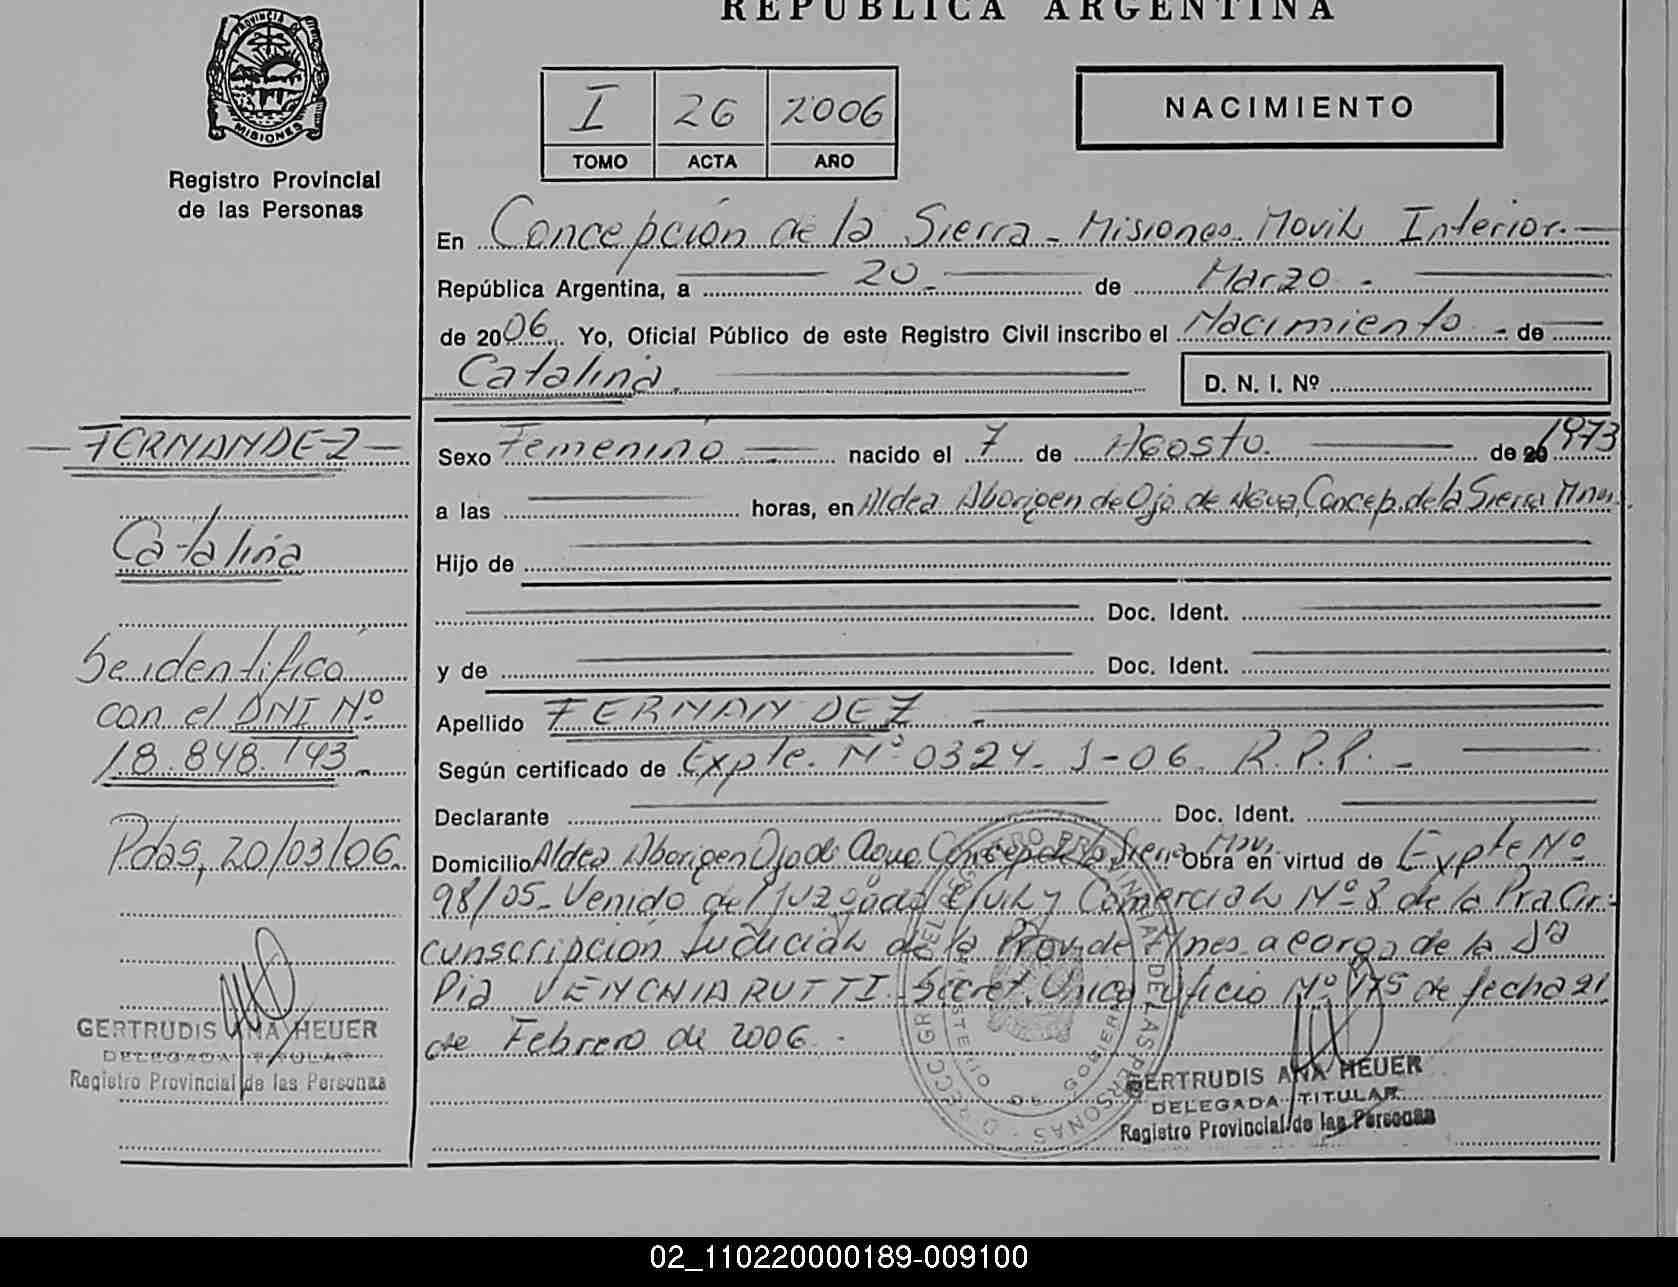 REPUBLICA ARGENTINA
PROVINCIA DE
MISIONES
Registro Provincial
de las Personas
I 26 2006
TOMO ACTA AÑO
NACIMIENTO
En Concepción de la Sierra - Misiones. Movil Interior.-
República Argentina, a 20 de Marzo -
de 2006 Yo, Oficial Público de este Registro Civil inscribo el Nacimiento - de
Catalina.
D. N. I. Nº
- FERNANDEZ -
Sexo Femenino nacido el 7 de Agosto. de 20 1973
a las horas, en Aldea Aborigen de Ojo de Concep. de la Sierra Mnes.
Catalina
Hijo de
Doc. Ident.
y de Doc. Ident.
Se identificó
con el DNI Nº
18.848.143.
Apellido FERNANDEZ.
Según certificado de Expte. Nº 0324. J-06 R.P.P. -
Declarante Doc. Ident.
Pdas, 20/03/06.
Domicilio Aldea Aborigen Ojo de Agua Concep de la Sierra Obra en virtud de Expte Nº
98/05 - Venido del Juzgado Civil y Comercial Nº 8 de la Pra Cir-
cunscripción Judicial de la Prov. de Mnes. a cargo de la
VENCHIARUTTI - Secret. Unica Oficio Nº 175 de fecha 21
de Febrero de 2006 -
GERTRUDIS ANA HEUER
DELEGADA TITULAR
Registro Provincial de las Personas
GERTRUDIS ANA HEUER
DELEGADA TITULAR
Registro Provincial de las Personas
02_110220000189-009100